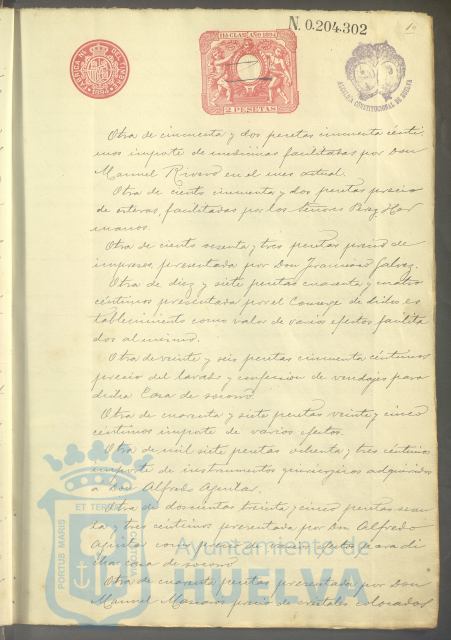 N. 0.204.302
11ª CLASE AÑO 1894
2 PESETAS
ALCALDIA CONSTITUCIONAL DE HUELVA
Otra de cincuenta y dos pesetas cincuenta cénti
mos importe de medicinas facilitadas por Don
Manuel en el mes actual.
Otra de ciento cincuenta y dos pesetas precio
de esteras, facilitadas por los Señores Perez Her
manos.
Otra de ciento sesenta y tres pesetas precio de
impresos, presentada por Don Francisco Galvez.
Otra de diez y siete pesetas cuarenta y cuatro
céntimos presentada por el Conserge de dicho es
tablecimiento como valor de varios efectos facilita
dos al mismo.
Otra de veinte y seis pesetas cincuenta céntimos
precio del lavado y confección de vendajes para
dicha Casa de socorro.
Otra de cuarenta y siete pesetas veinte y cinco
céntimos importe de varios efectos.
Otra de mil siete pesetas ochenta y tres céntimos
importe de instrumentos quirúrgicos adquiridos
a Don Alfredo Aguilar.
Otra de doscientas treinta y cinco pesetas
y tres céntimos presentada por Don Alfredo
Aguilar como precio de para di
cha casa de socorro
Otra de cuarenta pesetas presentada por Don
Manuel precio de cristales colocados
PORTUS MARIS ET TERRAE CUSTODIA
Ayuntamiento de
HUELVA